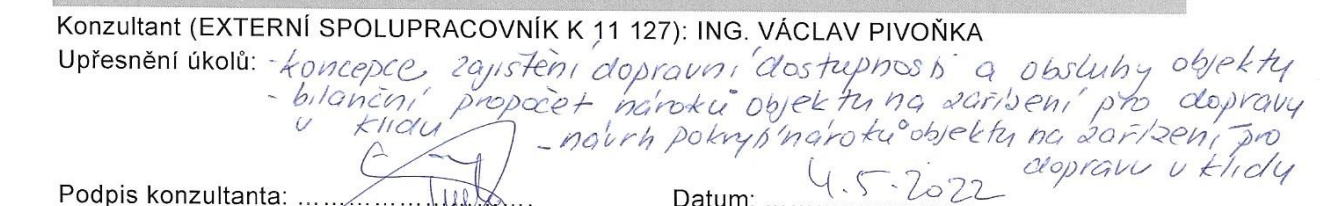 Konzultant (EXTERNÍ SPOLUPRACOVNÍK K 11 127): ING. VÁCLAV PIVOŇKA
Upřesnění úkolů: - koncepce zajištění dopravní dostupnosti a obsluhy objektu
- bilanční propočet nároků objektu na zařízení pro dopravu
v klidu
- návrh pokrytí nároků objektu na zařízení pro
dopravu v klidu
Podpis konzultanta: ............................ Datum: ... 4.5.2022